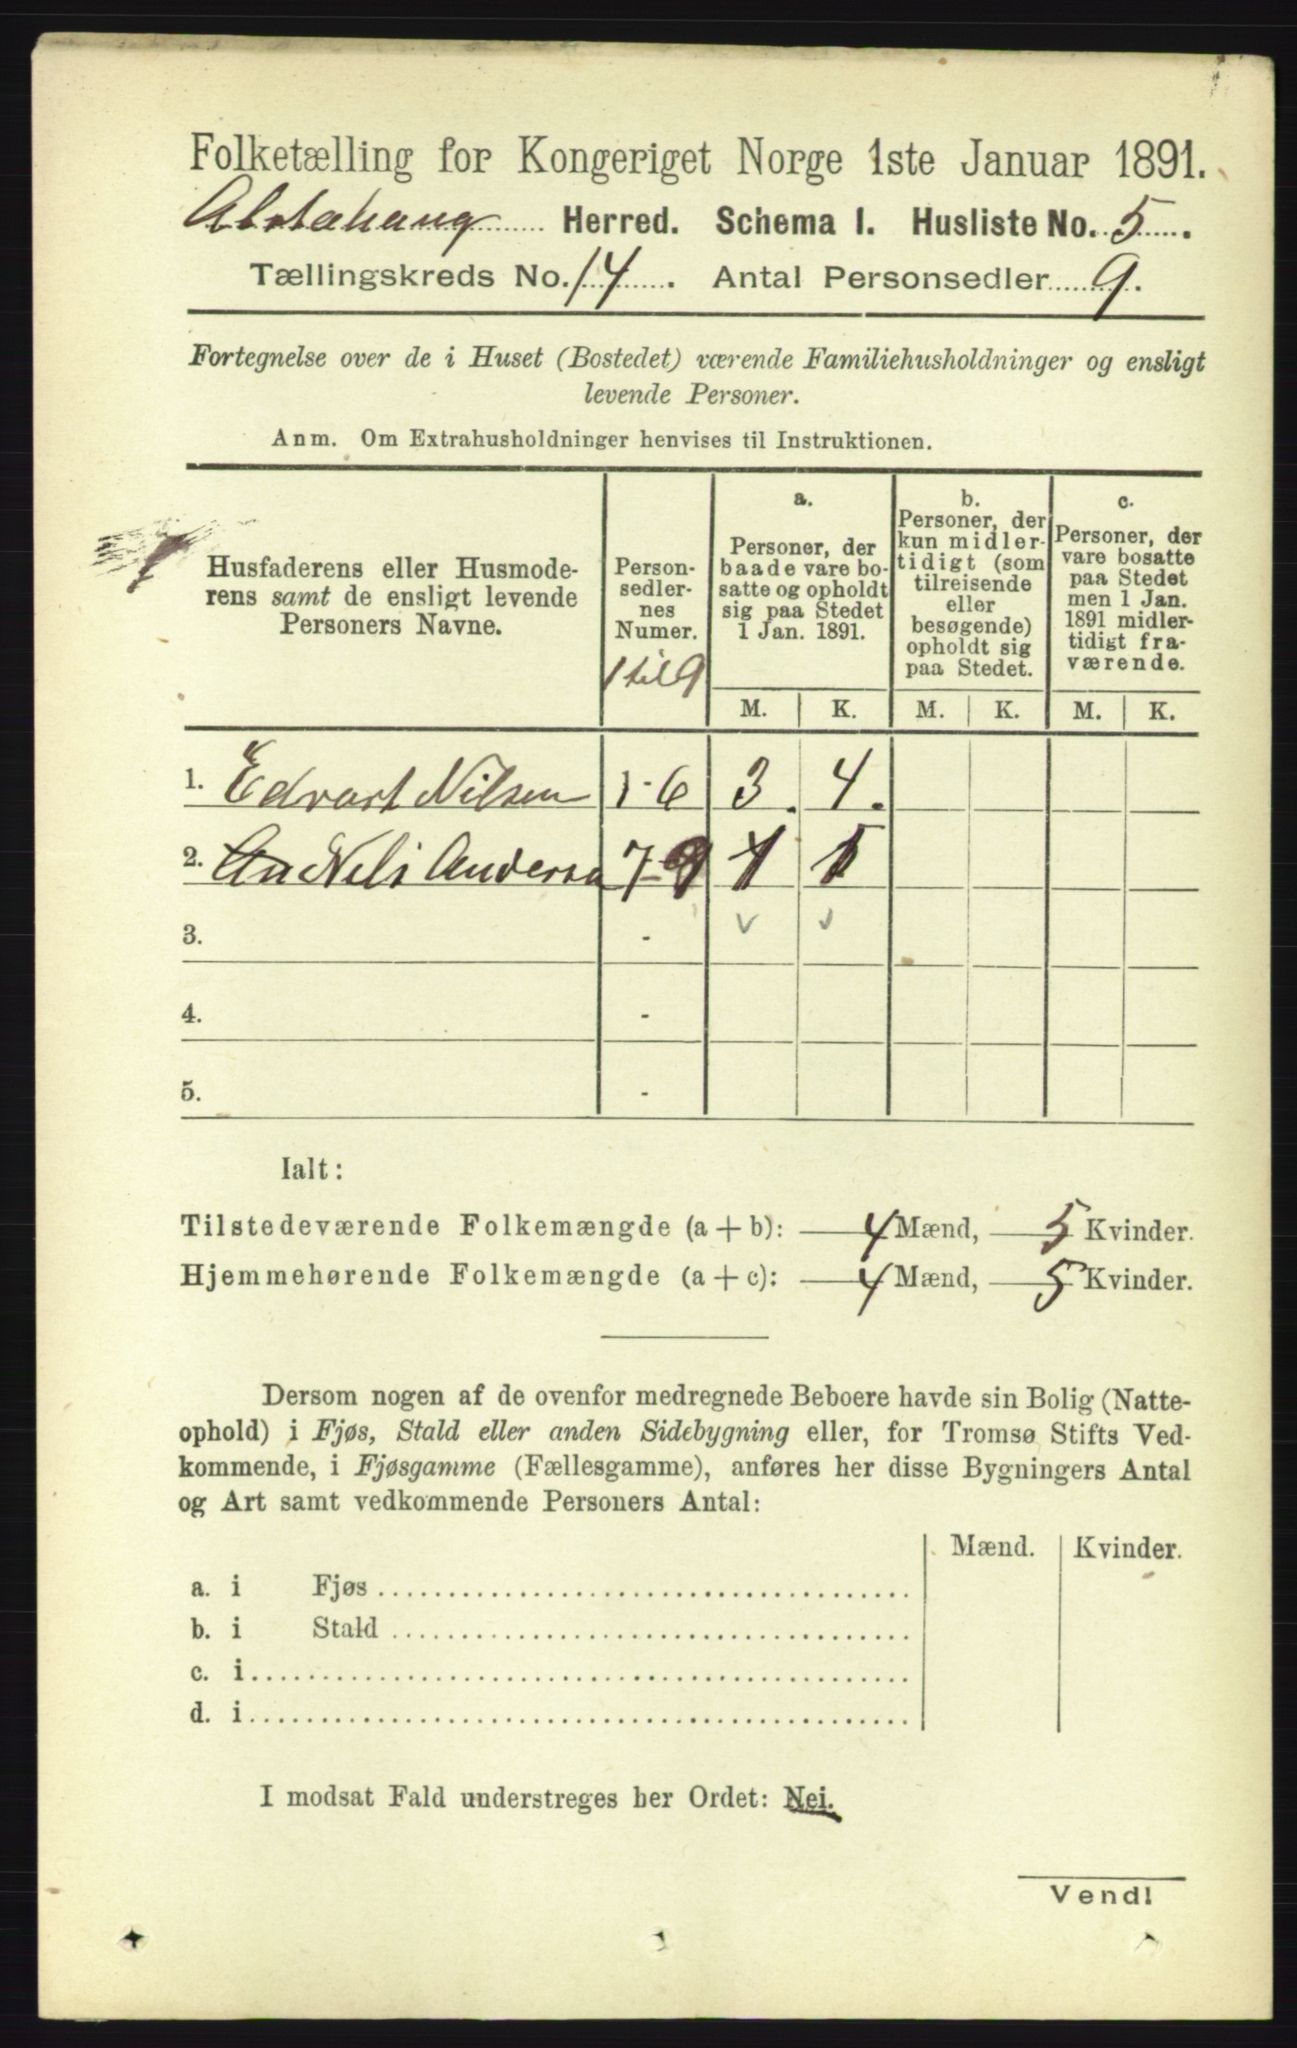 Folketælling for Kongeriget Norge 1ste Januar 1891.
Alstahaug Herred. Schema I. Husliste No. 5.
Tællingskreds No. 14. Antal Personsedler 9.
Fortegnelse over de i Huset (Bostedet) værende Familiehusholdninger og ensligt
levende Personer.
Anm. Om Extrahusholdninger henvises til Instruktionen.
Husfaderens eller Husmode-
rens samt de ensligt levende
Personers Navne.
Person-
sedler-
nes
Numer.
1 til 9
a.
Personer, der
baade vare bo-
satte og opholdt
sig paa Stedet
1 Jan. 1891.
b.
Personer, der
kun midler-
tidigt (som
tilreisende
eller
besøgende)
opholdt sig
paa Stedet.
c.
Personer, der
vare bosatte
paa Stedet
men 1 Jan.
1891 midler-
tidigt fra-
værende.
M. K. M. K. M. K.
1. Edvart Nilsen 1-6 3. 4.
2. Nels Andersen 7-9 1
3. -
4. -
5. -
Ialt:
Tilstedeværende Folkemængde (a + b): 4 Mænd, 5 Kvinder.
Hjemmehørende Folkemængde (a + c): 4 Mænd, 5 Kvinder.
Dersom nogen af de ovenfor medregnede Beboere havde sin Bolig (Natte-
ophold) i Fjøs, Stald eller anden Sidebygning eller, for Tromsø Stifts Ved-
kommende, i Fjøsgamme (Fællesgamme), anføres her disse Bygningers Antal
og Art samt vedkommende Personers Antal:
Mænd. Kvinder.
a. i Fjøs
b. i Stald
c. i
d. i
I modsat Fald understreges her Ordet: Nei.
Vend!